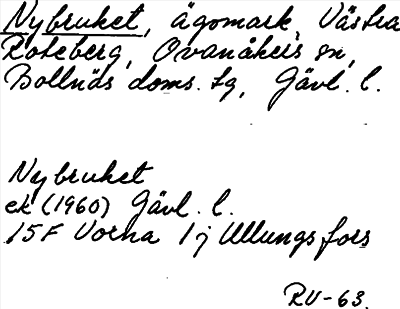 Nybruket, ägomark, Västra
Roteberg, Ovanåkers sn,
Bollnäs doms. tg, Gävl. l.
Nybruket
ek (1960) Gävl. l.
15F Vorna 1j Ullungsfors
RV-63.